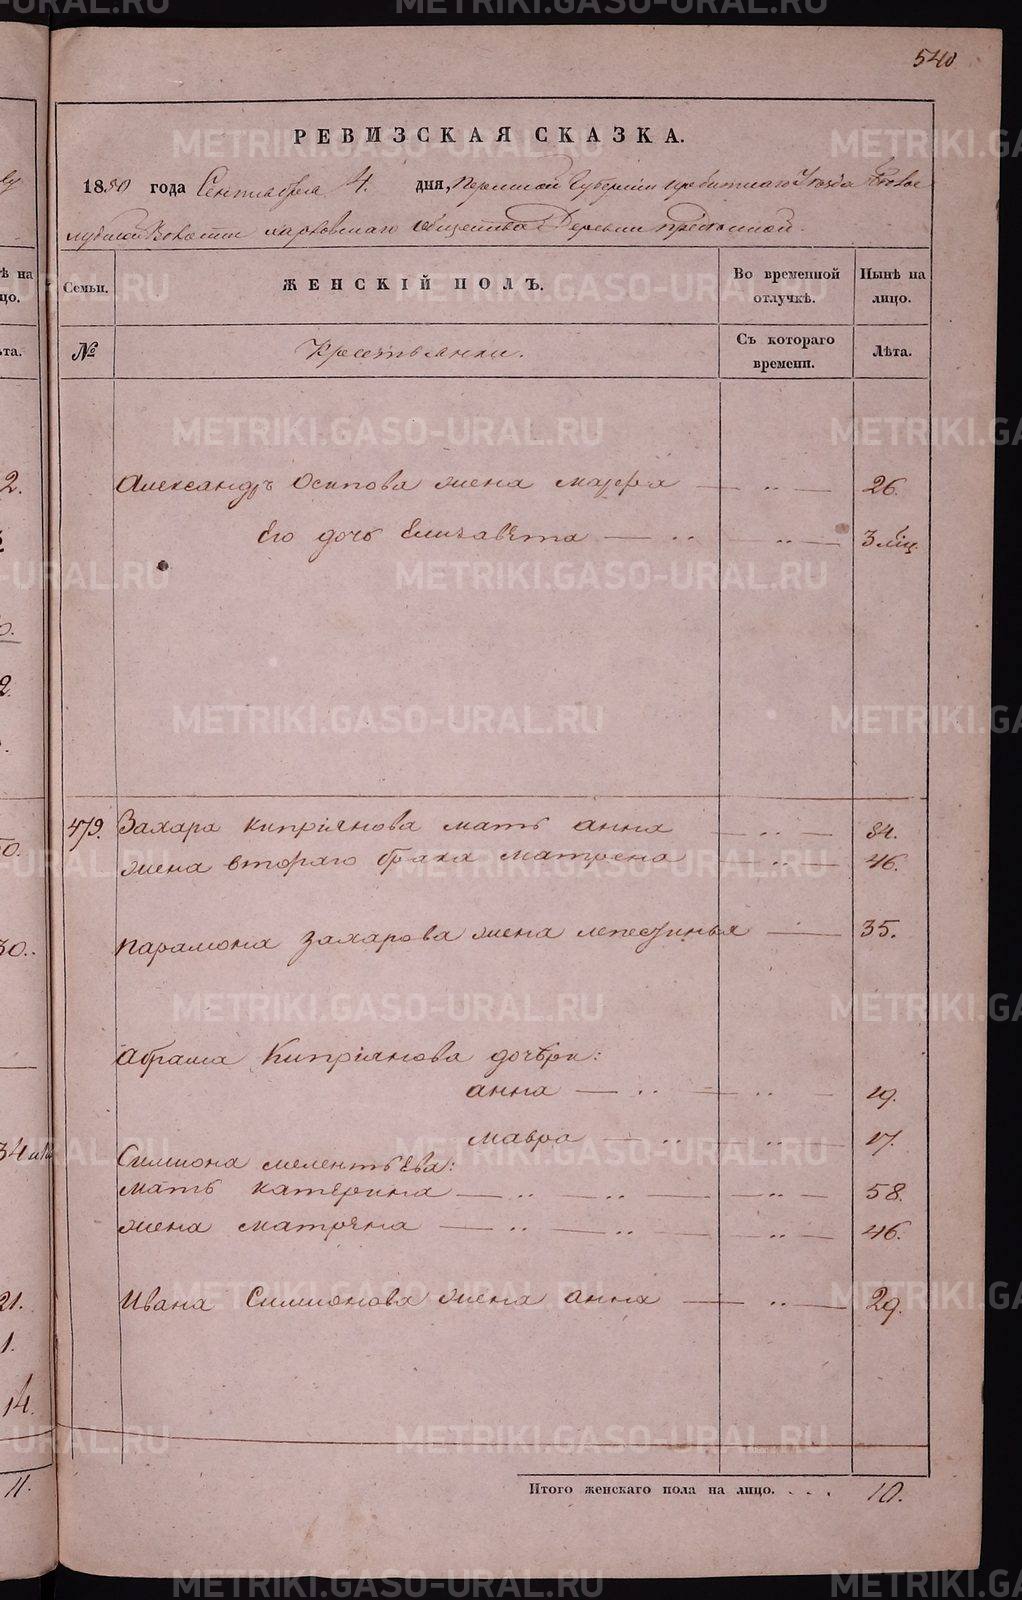 540
РЕВИЗСКАЯ СКАЗКА.
1850 года Сентября 4. дня, Пермской Губернiи Ирбитскаго Уезда
Волости Харловскаго общества Деревни
Семьи. ЖЕНСКIЙ ПОЛЪ. Во временной отлучкѣ. Нынѣ на лицо.
№ Крестьянки. Съ котораго времени. Лѣта.
Александръ Осипова жена марфа — „ — 26.
Его дочь Елизавѣта — „ — „ — 3 мiц
479. Захара киприянова мать анна — „ — 84.
жена втораго брака матрена — „ — 46.
парамона захарова жена — „ — 35.
абрама Киприянова дочѣри:
анна — „ — „ — 19.
мавра — „ — „ — 17.
Симиона мелентьева:
мать катерина — „ — „ — „ — 58.
жена матрена — „ — „ — „ — 46.
Ивана Симионова жена анна — „ — 29.
Итого женскаго пола на лицо. . . . 10.
METRIKI.GASO-URAL.RU